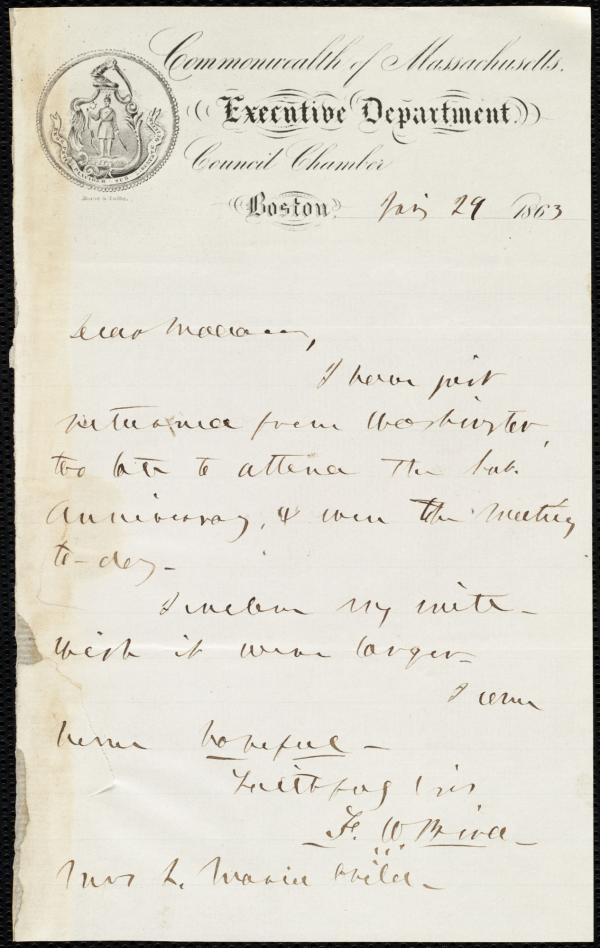 Commonwealth of Massachusetts.
Executive Department.
Council Chamber
Boston Jany 29 1863
Dear Madam,
I have just
returned from Washington,
too late to attend the Sub.
Anniversary, & even the meeting
to-day-
I inclose my mite-
wish it were larger-
I come
home hopeful-
Faithfully Yrs
F. W. Bird-
Mrs L. Maria Child-